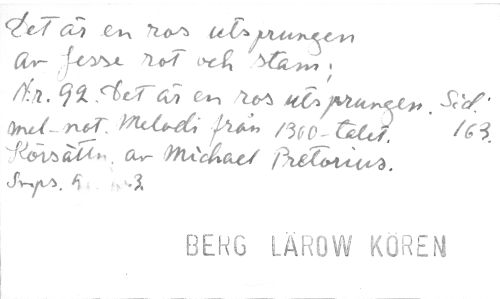 Det är en ros utsprungen
av Jesse rot och stam;
Nr. 92. Det är en ros utsprungen. Sid.
mel-not. Melodi från 1300-talet. 163.
Körsättn. av Michael Pretorius.
BERG LÄROW KÖREN